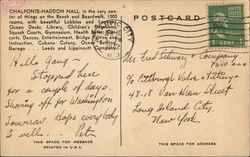 CHALFONTE-HADDON HALL, in the very center of things on the Beach and Boardwalk. 1000 rooms, with beautiful Lobbies and Lounges, Ocean Decks, Library, Children's Playroom, Squash Courts, Gymnasium, Health Baths, Concerts, Dances, Entertainment, Bridge Parties and Instruction, Cabana Colony, Ocean Bathing, Garage... Leeds and Lippincott Company.
Hello Gang -
Stopped here
for a couple of days.
Shoving off for Washington
tomorrow. Hope everybody
is well. . . Pete
THIS SPACE FOR MESSAGE
PRINTED IN U.S.A.
POSTCARD
1 CENT 1
Mr. Fred Schwarz + Company
% Pittsburgh Valve + Fittings
43-18 Van Dam Street
Long Island City
New York.
THIS SPACE FOR ADDRESS